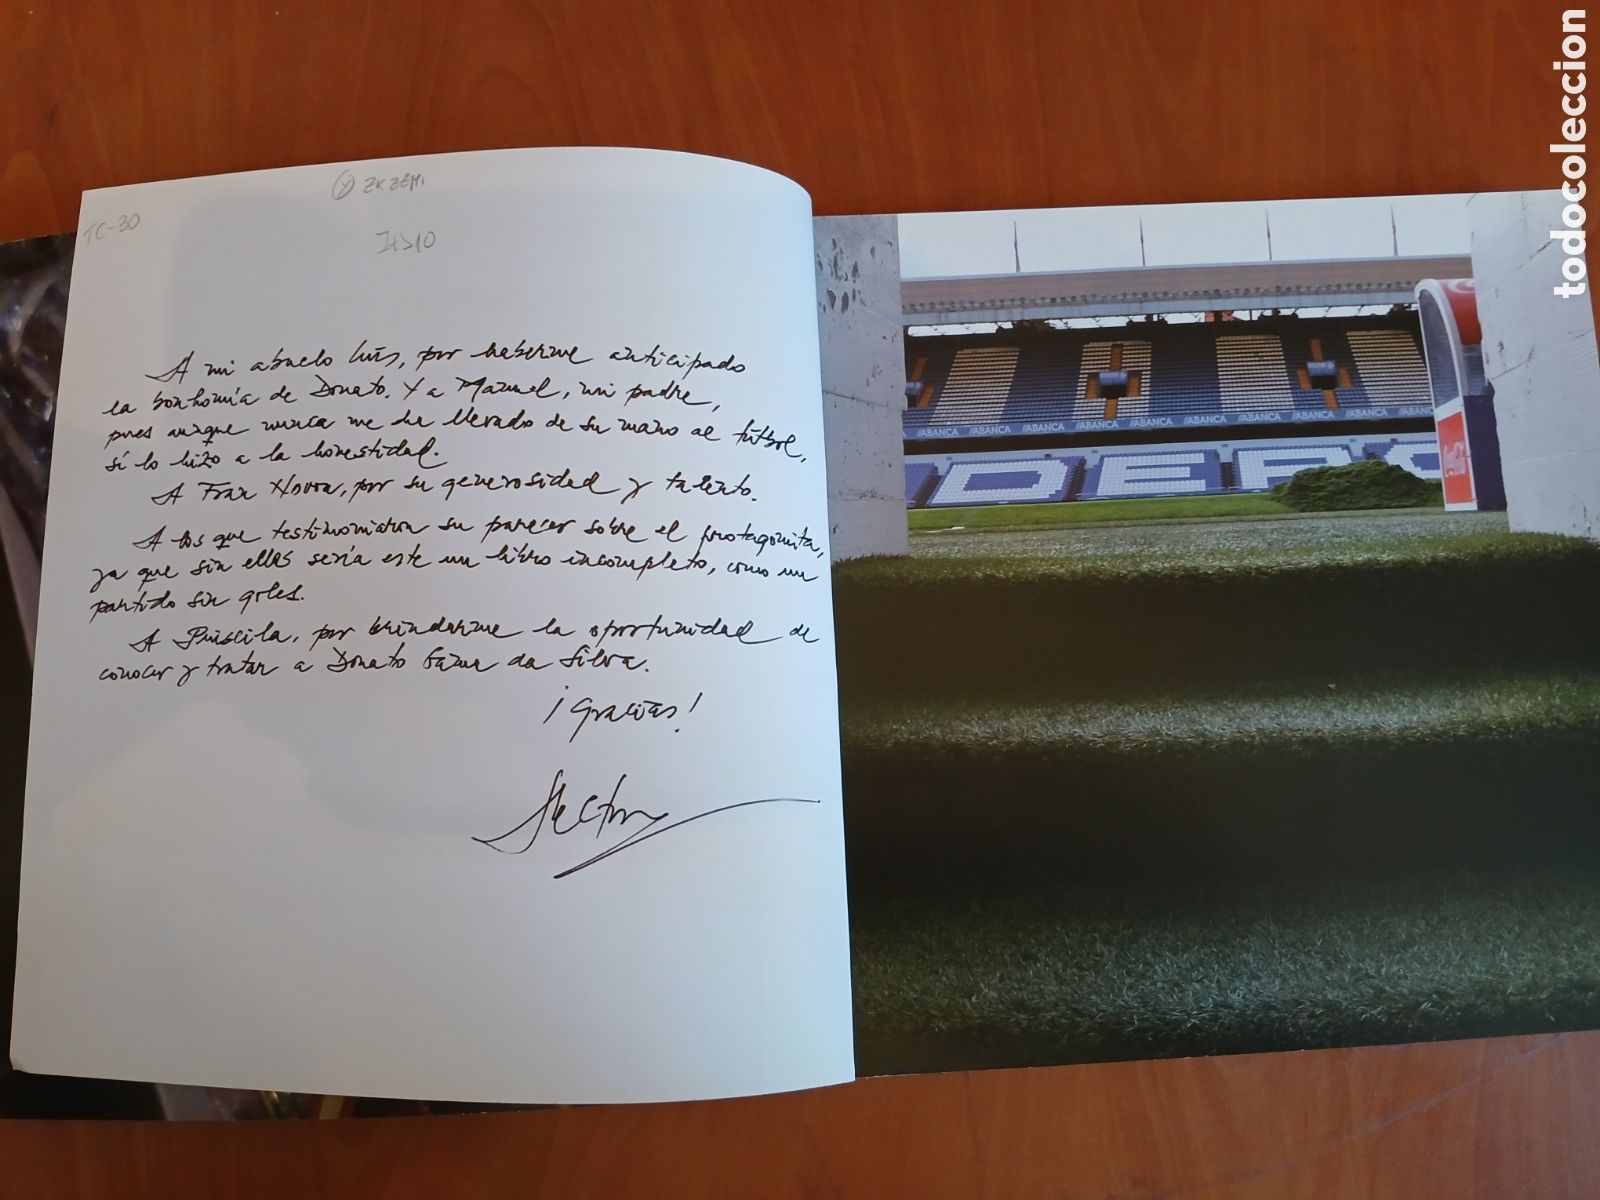 TC-30
A mi abuelo Luis, por haberme anticipado
la bonhomía de Donato. Y a Manuel, mi padre,
pues aunque nunca me ha llevado de su mano al fútbol,
sí lo hizo a la honestidad.
A Fran Novoa, por su generosidad y talento.
A los que testimoniaron su parecer sobre el protagonista,
ya que sin ellos sería este un libro incompleto, como un
partido sin goles.
A Priscila, por brindarme la oportunidad de
conocer y tratar a Donato Gama da Silva.
¡Gracias!
Héctor
ABANCA ABANCA ABANCA ABANCA ABANCA ABANCA ABANCA ABANCA ABANCA
DEPO
Coca-Cola
todocoleccion